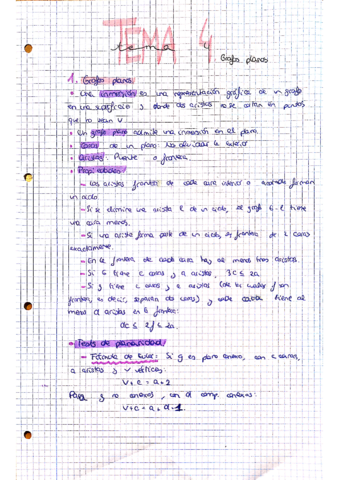 TEMA 4
tema 4
Grafos planos
1. Grafos planos.
• Una inmersión es una representación gráfica de un grafo
en una superficie y donde dos aristas no se cortan en puntos
que no sean V
• Un grafo plano admite una inmersión en el plano.
• Caras de un plano No olvidar la exterior
• Aristas: Puente o frontera.
• Propiedades:
- Las aristas frontera de cada cara interior o acotada forman
un ciclo
- Si se elimina una arista e de un ciclo, el grafo G-e tiene
una cara menos.
- Si una arista forma parte de un ciclo, es frontera de 2 caras
exactamente.
- En la frontera de cada cara hay al menos tres aristas.
- Si G tiene c caras y a aristas, 3c ≤ 2a
- Si G tiene c caras y a aristas (de las cuales f son
frontera, es decir, separan dos caras) y cada cara tiene al
menos d aristas en su frontera:
dc ≤ 2f ≤ 2a.
• Tests de planaridad
- Fórmula de Euler: Si G es plano conexo, con c caras,
a aristas y v vértices:
v+c = a+2
Para G no conexos, con d comp. conexas:
v+c = a+d+1.